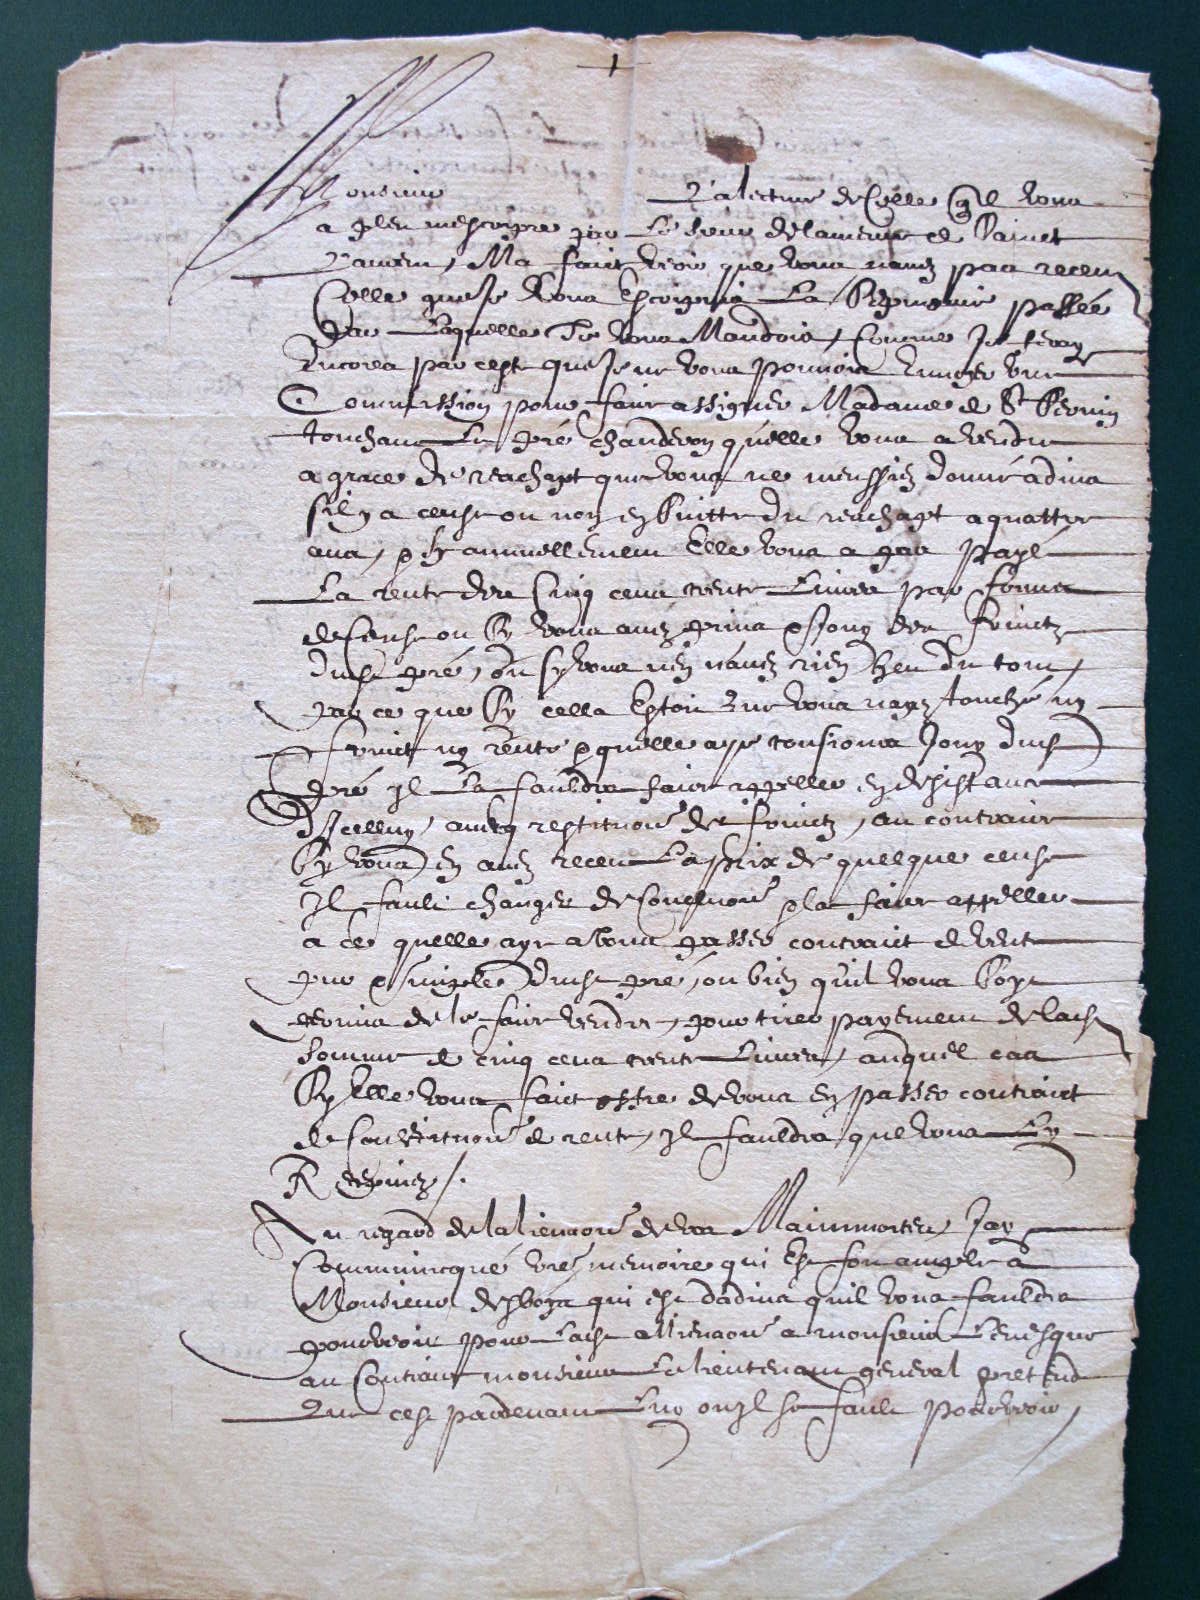 Monsieur La lecture de Celle quil vous
a pleu mescripre par le sieur de lamerur de Sainct
Laurens, Ma faict veoir que vous navez pas receu
Celle que Je vous Escripvis La Sepmaine passée
par Laquelle Je vous Mandois, Comme Je feray
Encores par ceste que Je ne vous pouvois envoyer une
Commission pour faire assigner Madame de St Sernin
touchant Le pré chanderon quelle vous a vendu
a grace de reachapt que vous ne meussiez donné advis
sil y a cense ou non en suitte du reachapt a quattre
ans, et sy annuellement Elle vous a pas payé
La rente des Cinq cens trente Livres par forme
de Cense ou sy vous avez prins et Jouy des fruictz
dudit pré, ou sy vous nen navez rien heu du tout,
par ce que sy cella Estoit Que vous nayez touché ny
fruict ny rente et quelle aye tousjours Jouy dudit
pré Il La fauldra faire appeller en desistance
D'Icelluy, avecq restitution des fruictz, au contraire
sy vous en avez receu La prix de quelque cense
Il fault changer de Conclusion et la faire appeller
a ce quelle aye a vous passer contraict de vente
pur et simple dudit pré, ou bien quil vous soye
permis de le faire vendre, pour tirer payement de ladite
somme de cinq cens trente Livres, auquel cas
sy Elle vous faict offre de vous en passer contraict
de Constitution de rente, Il fauldra que vous Ly
Recepviez /.
Au regard de lalienation de vos Mainmortes, Jay
Communicqué vostre memoire qui Est fort ample a
Monsieur desboys qui est dadvis quil vous fauldra
pourveoir pour Ladite allienation a monsieur Levesque
au Contraire monsieur Le lieutenant general pretend
Que cest pardevant Luy ou Il se fault pourveoir,